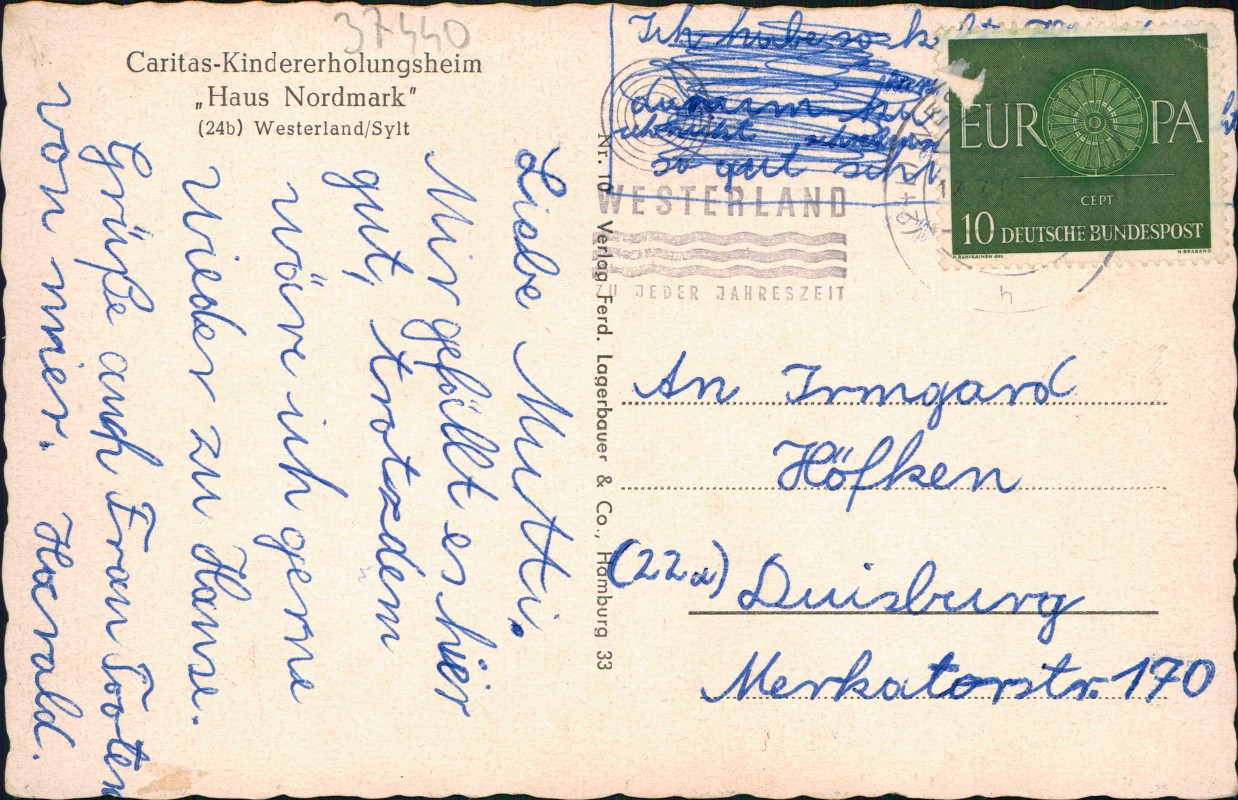 37440
Caritas-Kindererholungsheim
„Haus Nordmark"
(24b) Westerland/Sylt
Liebe Mutti,
Mir gefällt es hier
gut, trotzdem
wäre ich gerne
wieder zu Hause.
Grüße auch Frau Tooten
von mier. Harald.
Nr. 10 Verlag Ferd. Lagerbauer & Co., Hamburg 33
Ich habe so
darum
so gut
WESTERLAND
ZU JEDER JAHRESZEIT
EUROPA
CEPT
10 DEUTSCHE BUNDESPOST
h
An Irmgard
Höfken
(22a) Duisburg
Merkatorstr. 170